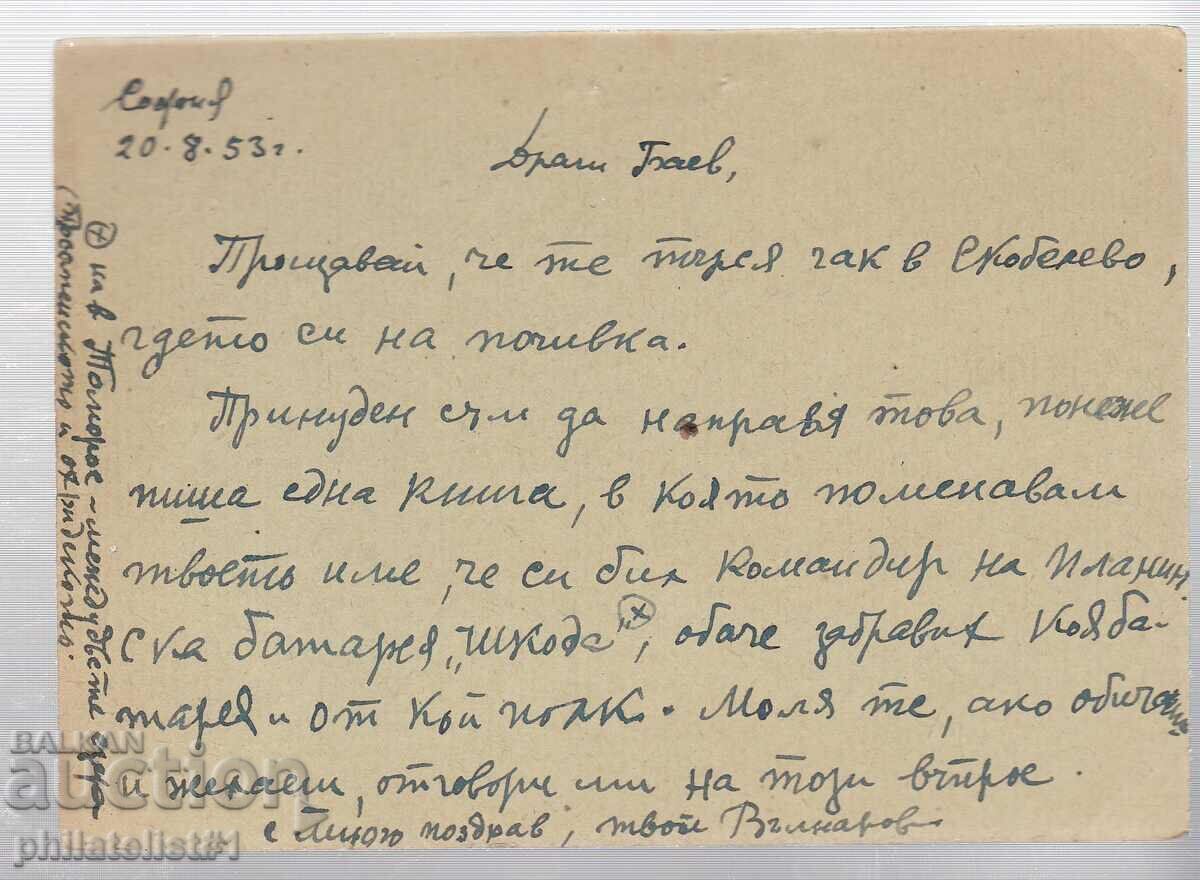 София
20.8.53 г.
Драги Баев,
Прощавай, че те търся чак в Скобелево,
гдето си на почивка.
Принуден съм да направя това, понеже
пиша една книга, в която поменавам
твоето име, че си бил командир на планин-
ска батарея „Шкода" (+), обаче забравих коя ба-
тарея и от кой полк. Моля те, ако обичаш
и желаеш, отговори ми на този въпрос.
с другарски поздрав, твой Вълнаров
(+) ни в Топорос - между двете езера
(Преспанското и Охридското).
BALKAN
auction
philatelist#1